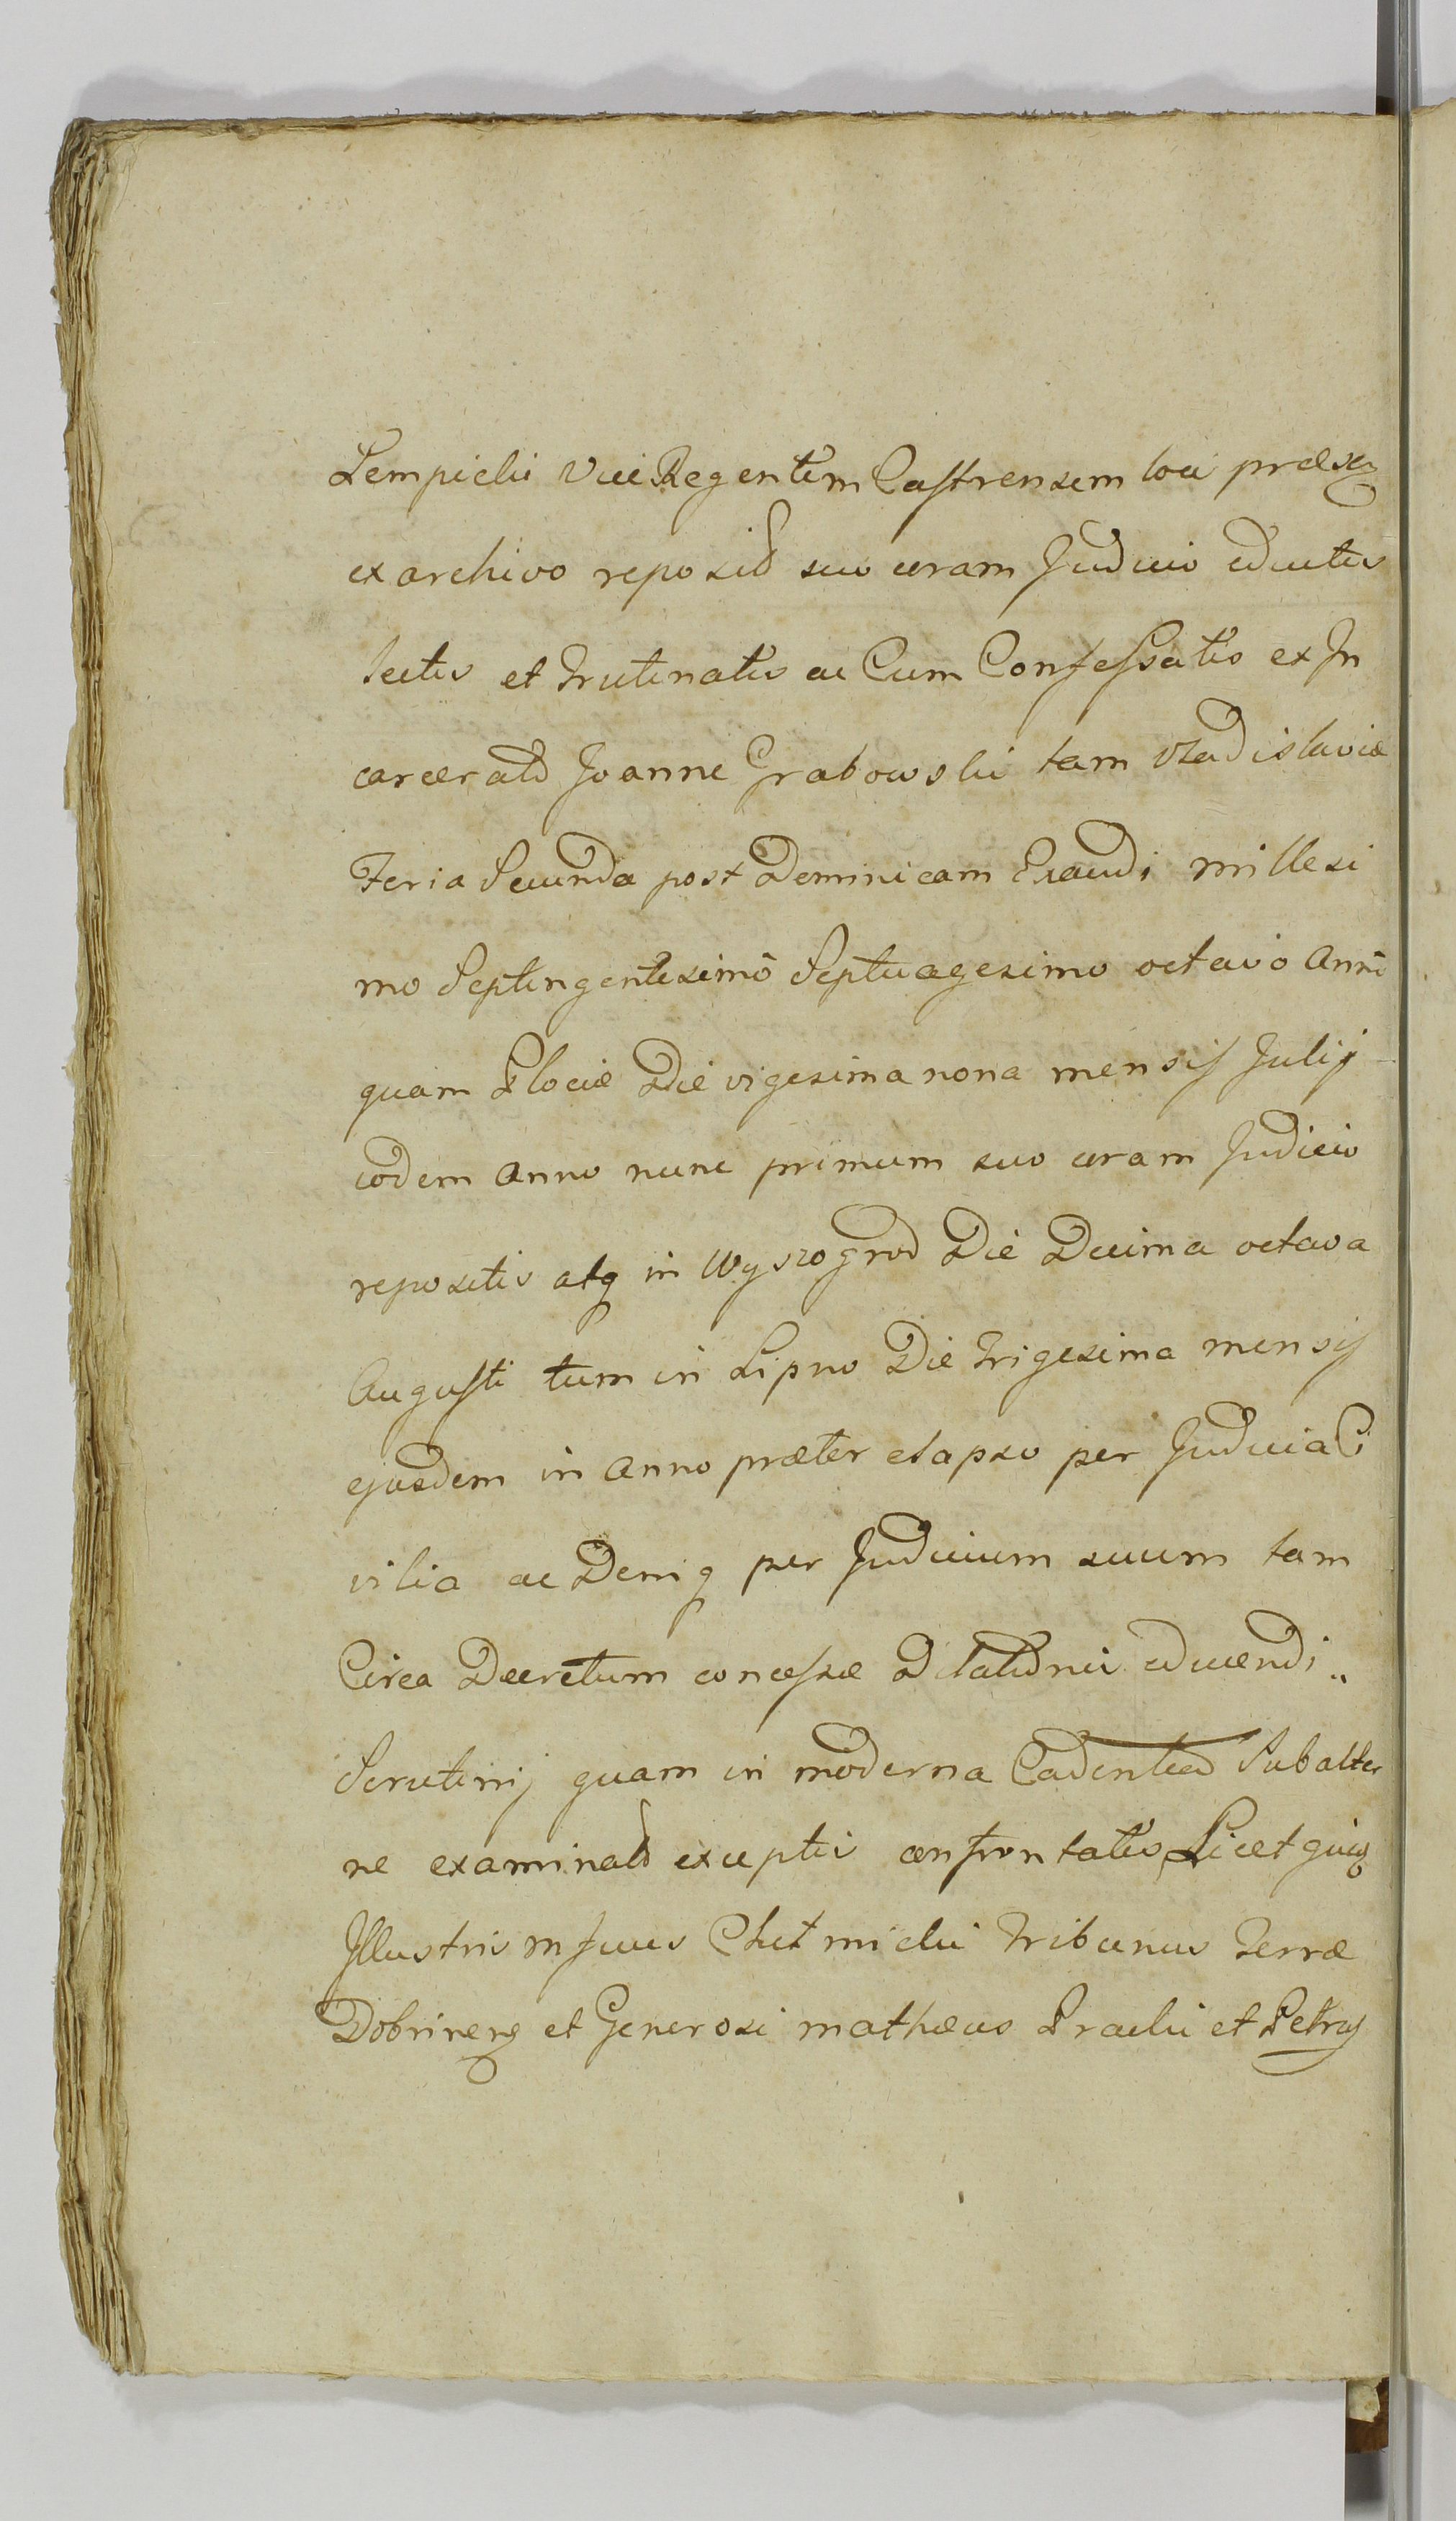 Lempicki Vice Regentem Castrensem loci præsen
ex archivo reposit suo coram Judicio eductis
lectis et Trutinatis ac Cum Confessatis ex In
carcerato Joanne Grabowski tam Vladislaviæ
Feria Secunda post Dominicam Exaudi millesi
mo Septingentesimo Septuagesimo octavo Anno
quam Plociæ Die vigesima nona mensis Julij
eodem Anno nunc primum suo coram Judicio
repositis atq in Wyszogrod Die Decima octava
Augusti tum in Lipno Die Trigesima mensis
ejusdem in Anno præter elapso per Judicia Ci
vilia ac Deniq per Judicium suum tam
Circa Decretum concessæ Dilationis educendi
Scrutinij quam in moderna Cadentia Subalter
ne examinato exceptis confrontatis, Licet
Illustris mfcus Chełmicki Tribunus Terræ
Dobrinens et Generosi mathæus Pracki et Petrus